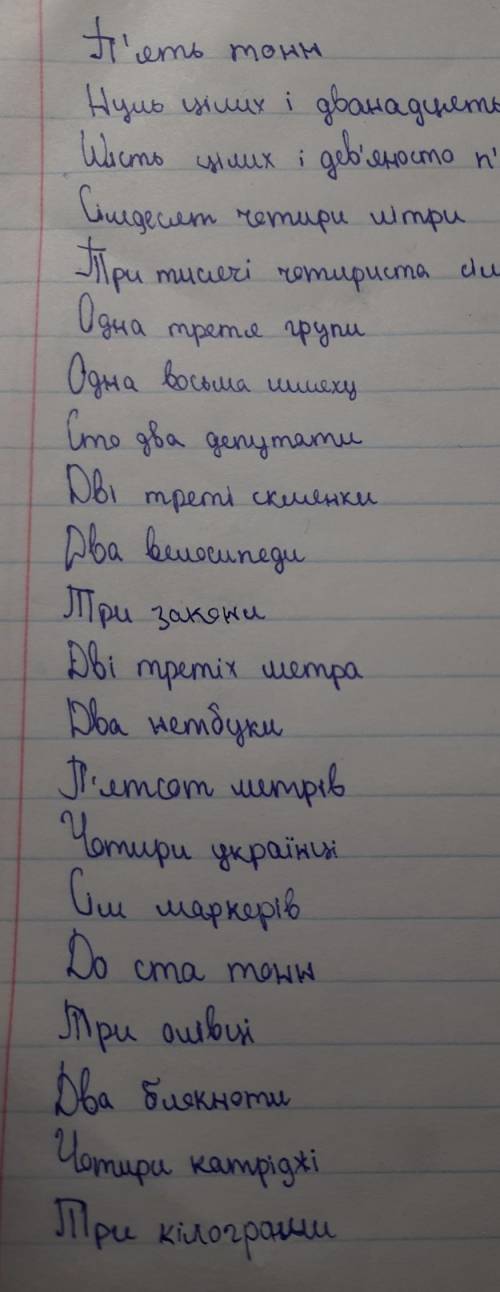 П'ять тонн
Нуль цілих і дванадцять
Шість цілих і дев'яносто п'
Сімдесят чотири літри
Три тисячі чотириста сім
Одна третя групи
Одна восьма шляху
Сто два депутати
Дві треті склянки
Два велосипеди
Три закони
Дві третіх метра
Два нетбуки
П'ятсот метрів
Чотири українці
Сім маркерів
До ста тонн
Три олівці
Два блокноти
Чотири катріджі
Три кілограми